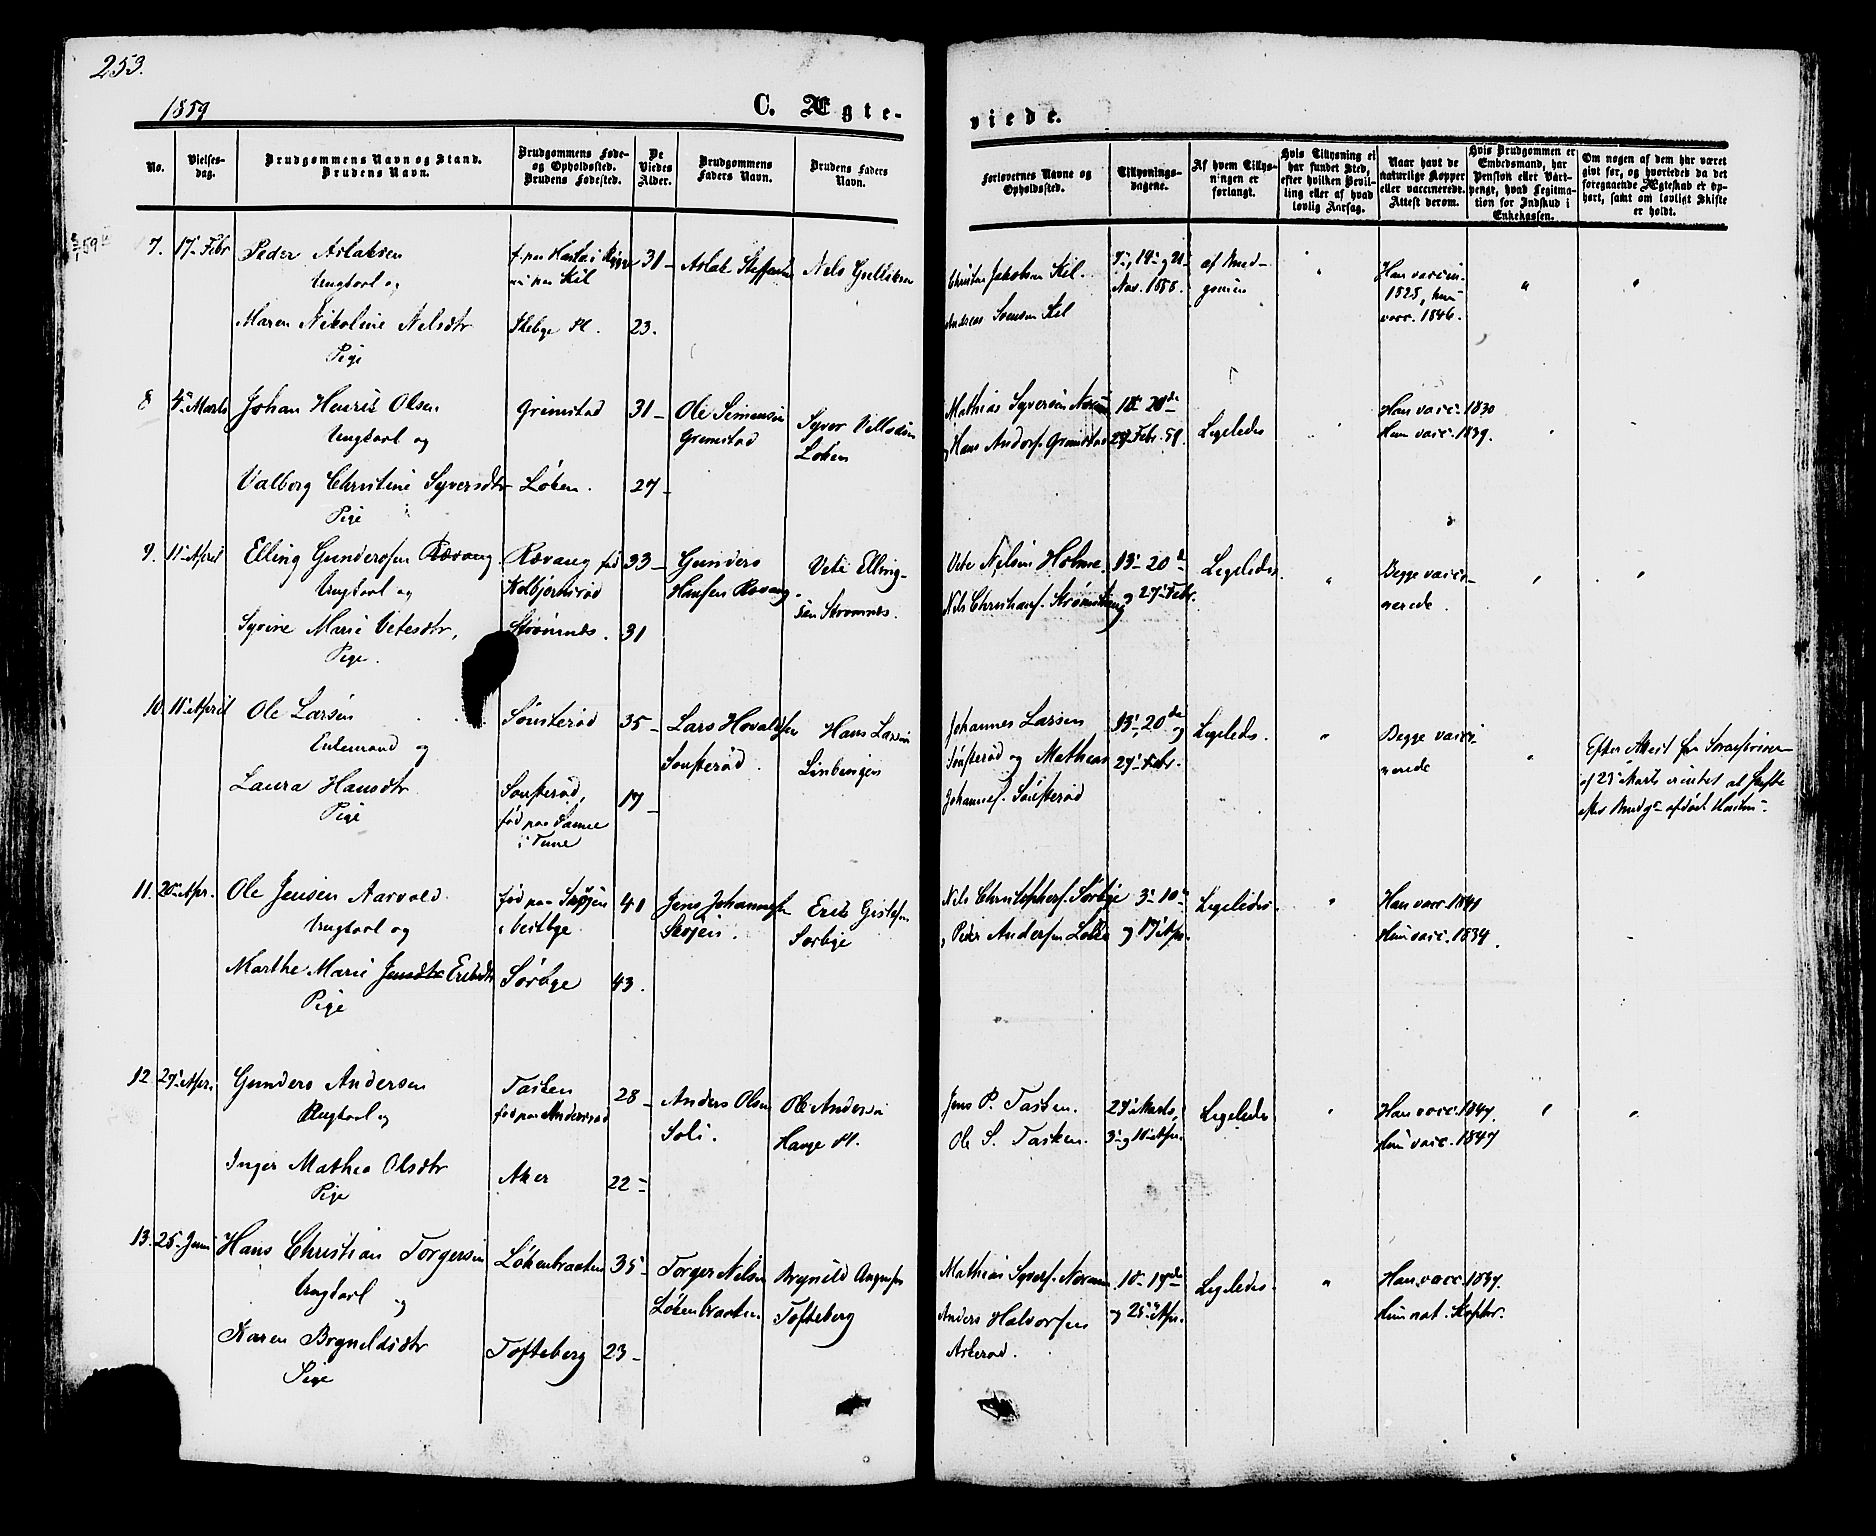 253.
1859
C. Ægte-
viede.
No.
Vielses-
dag.
Brudgommens Navn og Stand.
Brudens Navn.
Brudgommens Føde-
og Opholdssted.
Brudens Fødested.
De
Viedes
Alder.
Brudgommens
Faders Navn.
Brudens Faders
Navn.
Forlovernes Navne og
Opholdssted.
Tillysnings-
dagene.
Af hvem Tillys-
ningen er
forlangt.
Hvis Tillysning ei
har fundet Sted,
efter hvilken Bevil-
ling eller af hvad
lovlig Aarsag.
Naar havt de
naturlige Kopper
eller vaccinerede.
Attest derom.
Hvis Brudgommen er
Embedsmand, har
Pension eller Vart-
penge, hvad Legitima-
tion for Indskud i
Enkekassen.
Om nogen af dem har været
gift før, og hvorledes da det
foregaaende Ægteskab er op-
hørt, samt om lovligt Skifte
er holdt.
7. 17 Febr
Peder Aslaksen
Ungkarl og
Maren Nikoline Nelsdtr
Pige
Kil
Skebye Pl.
31
23.
Aslak Steffensen
Nels Gulliksen
Christen Jakobsen Kil.
Andreas Svensen Kil
7, 14 og 21
Nov. 1858.
af Brud-
gomen
Han vaccin.
1828, hun
vacc. 1846.
8 4 Marts
Johan Henrik Olsen
Ungkarl og
Valborg Christine Syversdtr
Pige
Grimstad
Løken.
31
27
Ole Simensen
Grimstad
Syver
Loken
Mathias Syversen
Hans Anders. Grimstad
20de
27 Febr. 59.
Ligeledes
Han vacc. 1830
Hun vacc. 1839.
9. 11 April
Elling Gundersen Rævang
Ungkarl og
Syvine Marie Vetesdtr,
Pige.
Rævang fød
Kolbjørnsrød
Strømnes.
33
31
Gunders
Hansen Rævang.
Vete Elling-
sen Strømnes.
Vete Nilsen Holme.
Nils Christians.
13 20de
og 27 Febr.
Ligeledes.
Begge vacci-
nerede.
10. 11 April
Ole Larsen
Enkemand og
Laura Hansdtr
Pige
Sønsterød
Sønsterød,
fød paa
i Tune
35
17
Lars
Sønsterød.
Hans Larsen
Johannes Larsen
Sønsterød og Mathias
Johannes. Sønsterød
13 20de og
27 Febr.
Ligeleds.
Begge vacci-
nerede
Efter Attest fra Sorenskriver
af 23 Marts er intet at skifte
efter Brudg. afdøde Hustru.
11. 20 Apr.
Ole Jensen Aarvold
Ungkarl og
Marthe Marie Jensdtr Eriksdtr
Pige
fød paa Skøjen
i Vestbye
Sørbye
41
43.
Jens Johannesen
Skøjen.
Erik
Sørbye
Nils Christophers. Sørbye
Peder Andersen Løken
3 10de
og 17 Apr.
Ligeledes.
Han vacc. 1841
Hun vacc. 1834.
12 27 Apr.
Gunders Andersen
Ungkarl og
Inger Mathea Olsdtr
Pige
Tasken
fød paa Andersrød
Aker
28
22
Anders Olsen
Soli.
Ole Andersen
Hauge Pl.
Jens P. Tasken.
Ole S. Tasken.
27 Marts,
3 og 10 Apr.
Ligeledes
Han vacc. 1847.
Hun vacc. 1847
13. 25 Juni
Hans Christian Torgersen
Ungkarl og
Karen Bryneldsdtr
Pige
Løkenbraaten
Tofteberg
35
23
Torger Nilsen
Løkenbraaten.
Bryneld
Tofteberg
Mathias Syvers.
Anders Halvorsen
Askerød.
10 17de
og 25 Apr.
Ligeledes.
Han vacc. 1837.
Hun nat. Kopper.